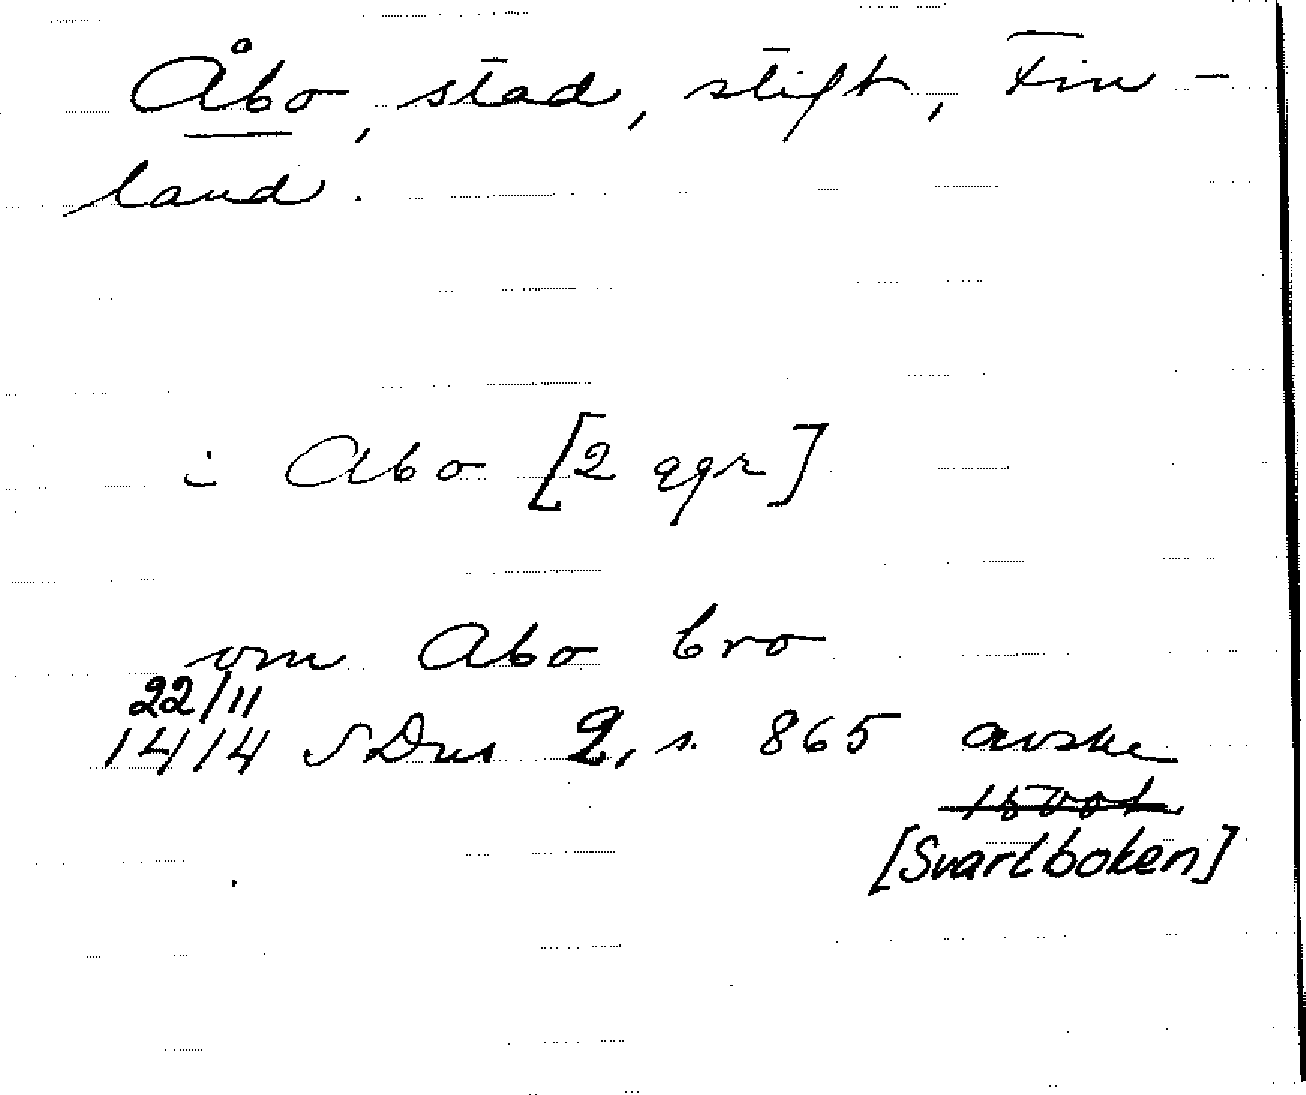 Åbo, stad, stift, Fin-
land.
i Abo [2 ggr]
om Abo bro
22/11
1414 SDns 2, s. 865 avskr
[Svartboken]